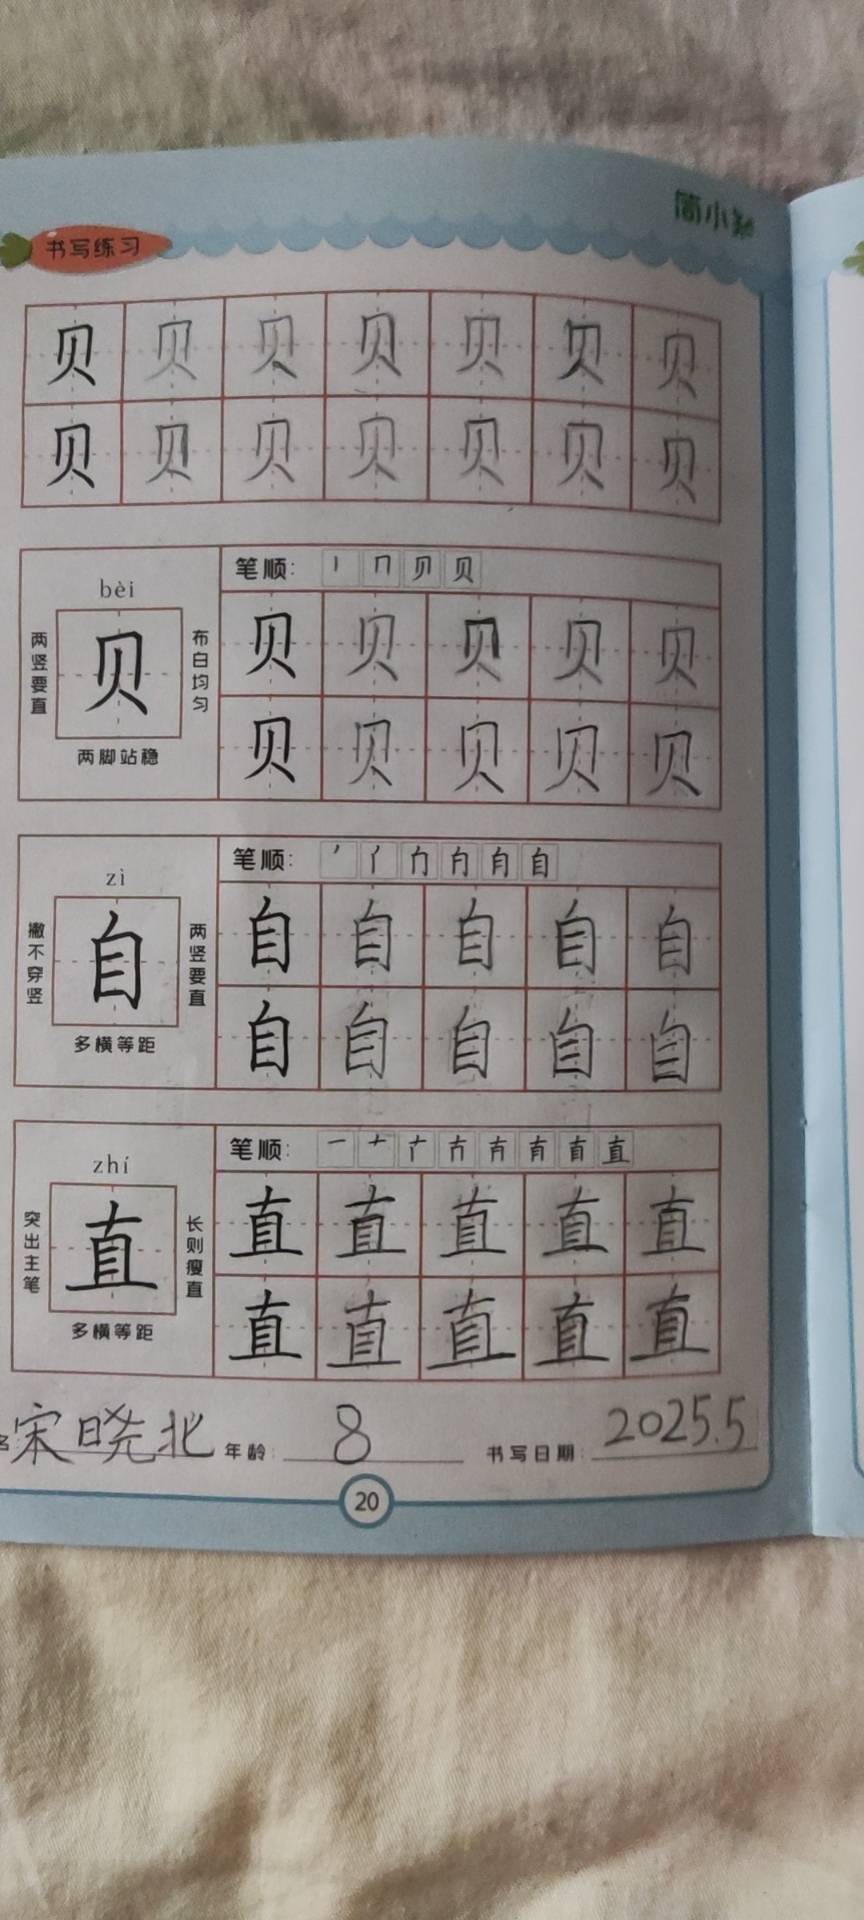 简小知
书写练习
贝 贝 贝 贝 贝 贝 贝
贝 贝 贝 贝 贝 贝 贝
bèi
两竖要直
贝
布白均匀
两脚站稳
笔顺:
贝 贝 贝 贝 贝
贝 贝 贝 贝 贝
zì
撇不穿竖
自
两竖要直
多横等距
笔顺:
自 自 自 自 自
自 自 自 自 自
zhí
突出主笔
直
长则瘦直
多横等距
笔顺:
直 直 直 直 直
直 直 直 直 直
宋晓北 年龄: 8 书写日期: 2025.5
20